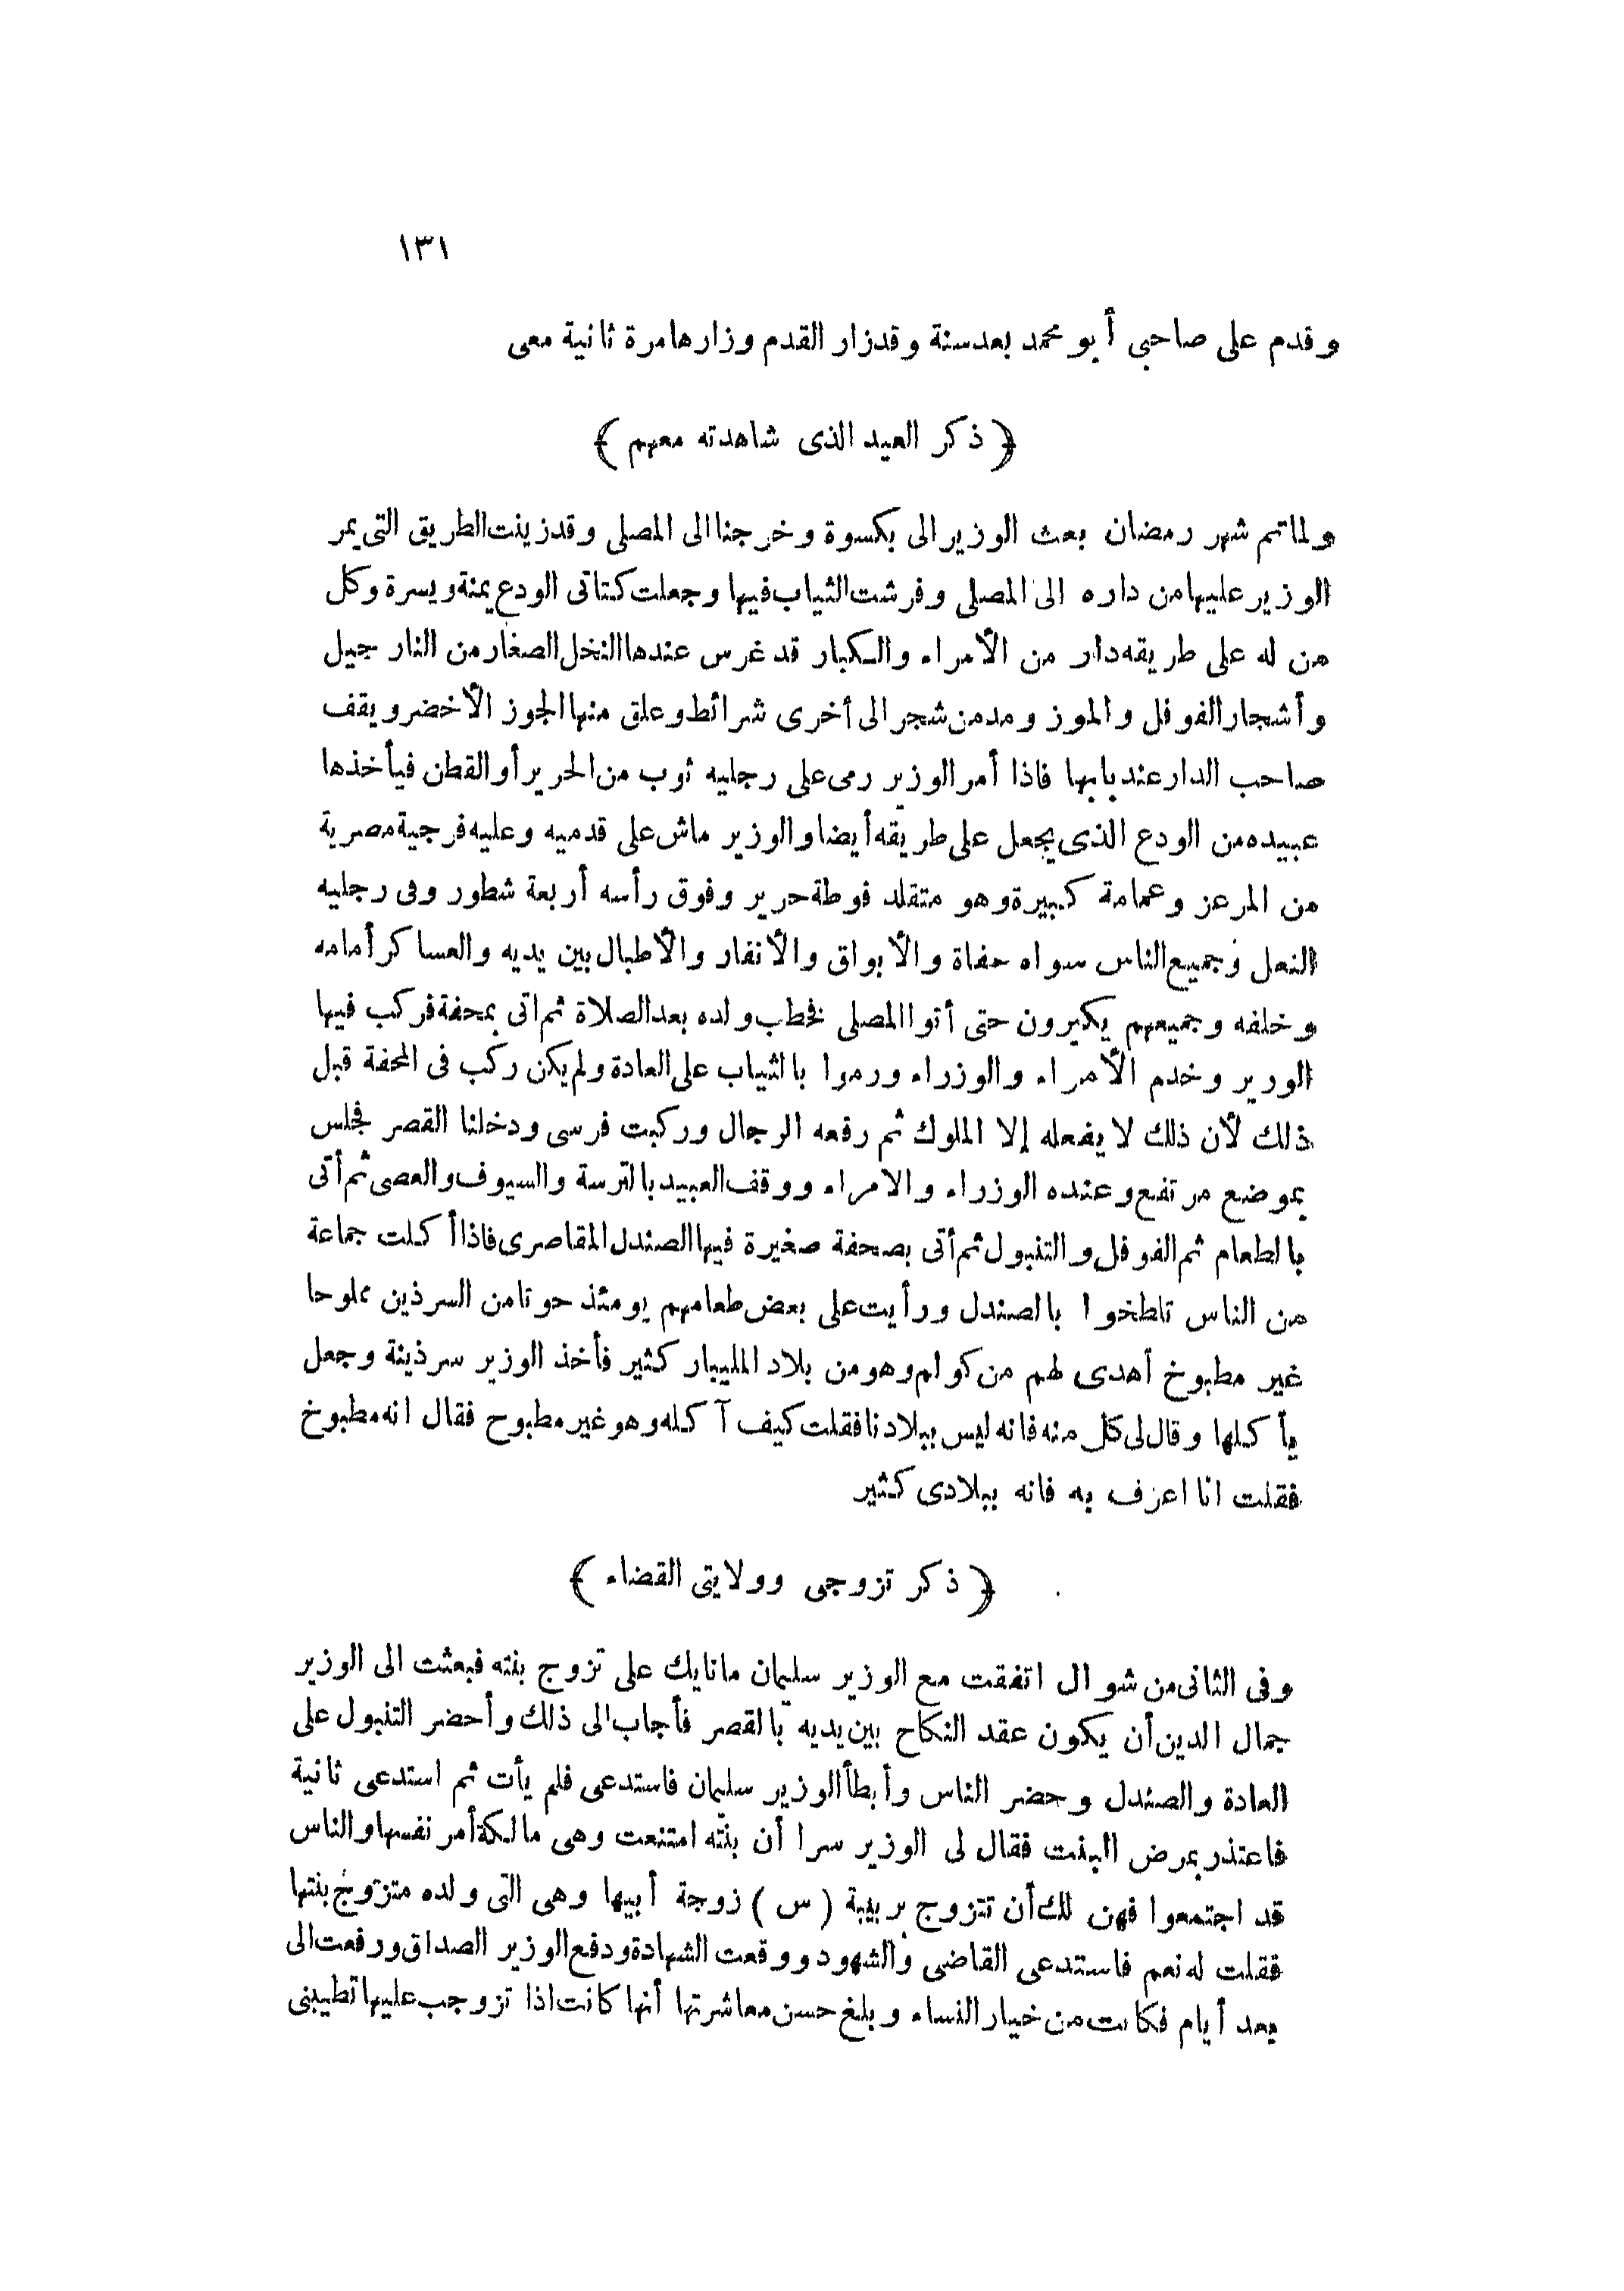 ١٣١
وقدم على صاحبى أبو محمد بعد سنة وقد زار القدم وزارها مرة ثانية معى
﴿ ذكر العيد الذى شاهدته معهم ﴾
ولما تم شهر رمضان بعث الوزير الى بكسوة وخرجنا الى المصلى وقد زينت الطريق التى يمر
الوزير عليها من داره الى المصلى وفرشت الثياب فيها وجعلت كتاتى الودع يمنة ويسرة وكل
من له على طريقه دار من الأمراء والكبار قد غرس عندها النخل الصغار من النار جيل
وأشجار الفوفل والموز ومد من شجر الى أخرى شرائط وعلق منها الجوز الأخضر ويقف
صاحب الدار عند بابها فاذا أمر الوزير رمى على رجليه ثوب من الحرير أو القطن فيأخذها
عبيده من الودع الذى يجعل على طريقه أيضا والوزير ماش على قدميه وعليه فرجية مصرية
من المرعز وعمامة كبيرة وهو متقلد فوطة حرير وفوق رأسه أربعة شطور وفى رجليه
النعل وجميع الناس سواه حفاة والأبواق والأنفار والأطبال بين يديه والعساكر أمامه
وخلفه وجميعهم يكبرون حتى أتوا المصلى فخطب ولده بعد الصلاة ثم اتى بمحفة فركب فيها
الورير وخدم الأمراء والوزراء ورموا بالثياب على العادة ولم يكن ركب فى المحفة قبل
ذلك لأن ذلك لا يفعله إلا الملوك ثم رفعه الرجال وركبت فرسى ودخلنا القصر فجلس
بموضع مرتفع وعنده الوزراء والامراء ووقف العبيد بالترسة والسيوف والعصى ثم أتى
بالطعام ثم الفوفل والتنبول ثم أتى بصحفة صغيرة فيها الصندل المقاصرى فاذا أكلت جماعة
من الناس تلطخوا بالصندل ورأيت على بعض طعامهم يومئذ حوتا من السرذين مملوحا
غير مطبوخ أهدى لهم من كولم وهو من بلاد المليبار كثير فأخذ الوزير سرذينة وجعل
يأكلها وقال لى كل منه فانه ليس ببلادنا فقلت كيف آكله وهو غير مطبوح فقال انه مطبوخ
فقلت انا اعرف به فانه ببلادى كثير
﴿ ذكر تزوجى وولايتى القضاء ﴾
وفى الثانى من شوال اتفقت مع الوزير سليمان مانايك على تزوج بنته فبعثت الى الوزير
جمال الدين أن يكون عقد النكاح بين يديه بالقصر فأجاب الى ذلك وأحضر التنبول على
العادة والصندل وحضر الناس وأبطأ الوزير سليمان فاستدعى فلم يأت ثم استدعى ثانية
فاعتذر بمرض البنت فقال لى الوزير سرا أن بنته امتنعت وهى مالكة أمر نفسها والناس
قد اجتمعوا فهن لك أن تتزوج بربيبة ( س ) زوجة أبيها وهى التى ولده متزوج بنتها
فقلت له نعم فاستدعى القاضى والشهود ووقعت الشهادة ودفع الوزير الصداق ورفعت الى
بعد أيام فكانت من خيار النساء وبلغ حسن معاشرتها أنها كانت اذا تزوجب عليها تطيبنى